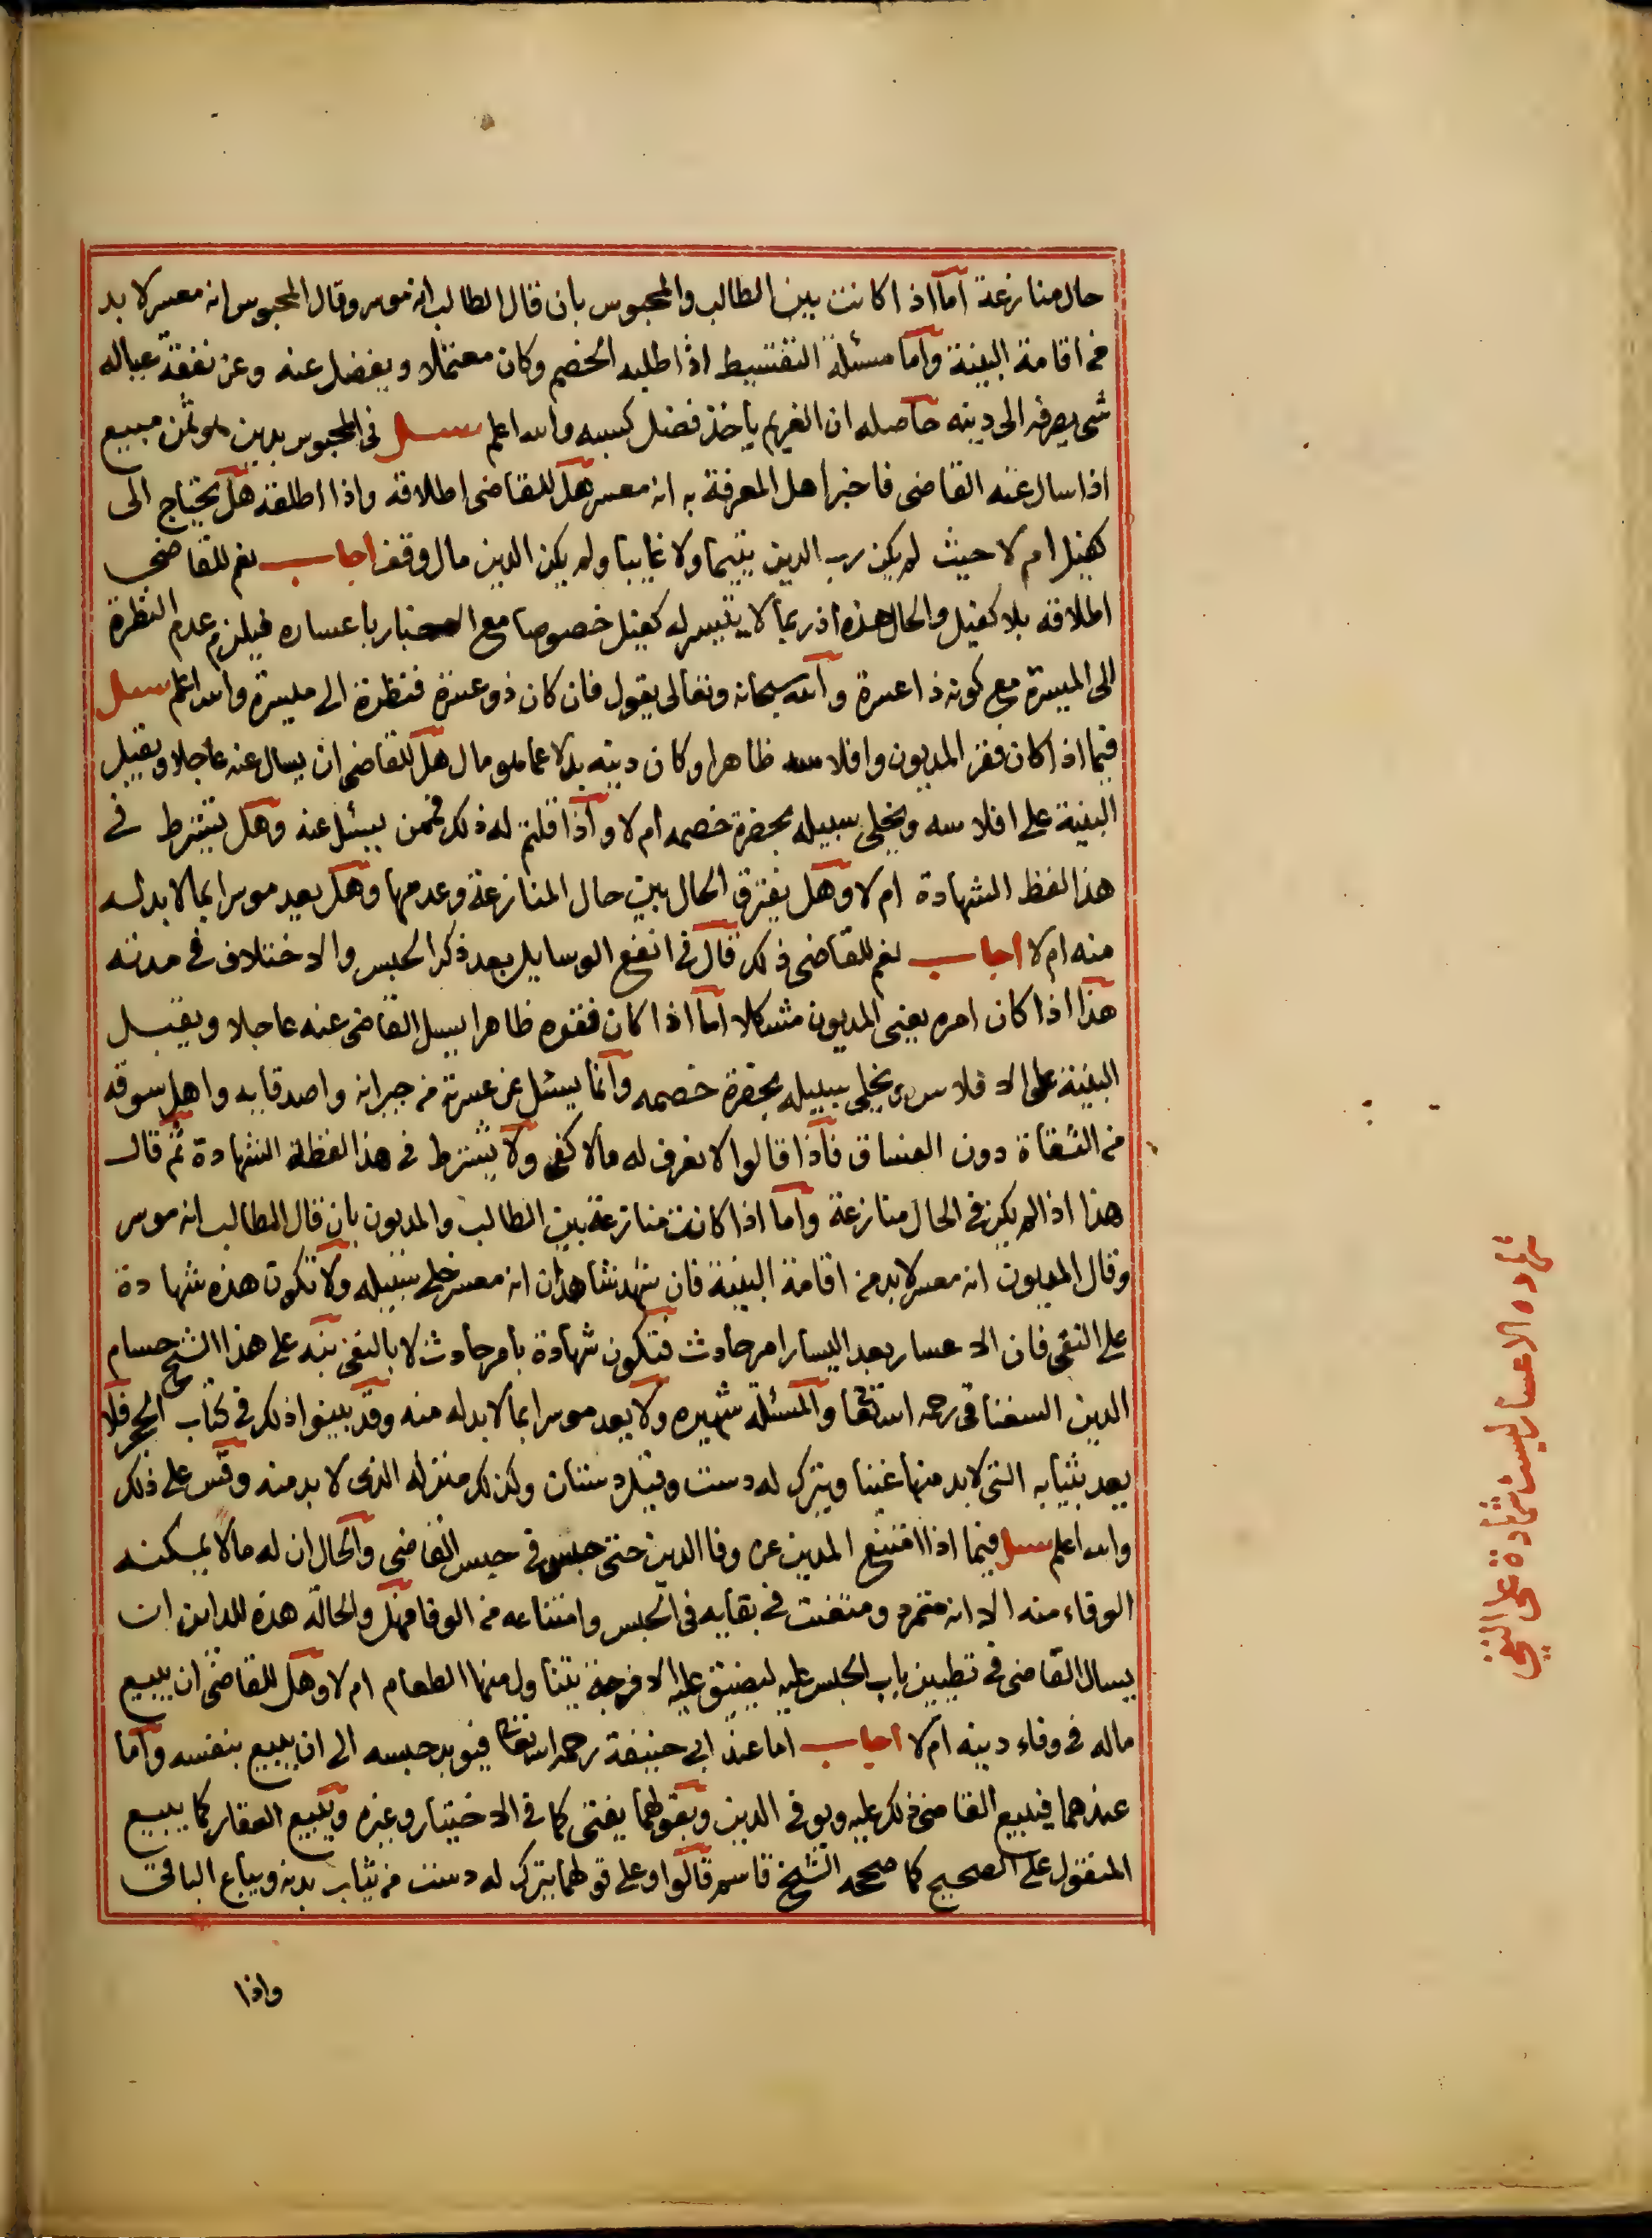 حال منازعة اما اذا كانت بين الطالب والمحبوس بان قال الطالب انه موسر وقال المحبوس انه معسر لا بد
من اقامة البينة واما مسئلة التقسيط اذا طلبه الخصم وكان معتملا ويفضل عنه وعن نفقة عياله
شى يصرفه الى دينه حاصله ان الغريم ياخذ فضل كسبه والله اعلم سئل فى المحبوس بدين هو ثمن مبيع
اذا سال عنه القاضى فاخبر اهل المعرفة به انه معسر هل للقاضى اطلاقه واذا اطلقه هل يحتاج الى
كفيل ام لا حيث لم يكن رب الدين يتيما ولا غايبا ولم يكن الدين مال وقف اجاب نعم للقاضى
اطلاقه بلا كفيل والحال هذه اذ ربما لا يتيسر له كفيل خصوصا مع الاخبار باعساره فيلزم عدم النظرة
الى الميسرة مع كونه ذا عسرة والله سبحانه وتعالى يقول فان كان ذو عسرة فنظرة الى ميسرة والله اعلم سئل
فيما اذا كان فقر المديون وافلاسه ظاهرا وكان دينه بدلا عما هو مال هل للقاضى ان يسال عنه عاجلا ويقبل
البينة على افلاسه ويخلى سبيله بحضرة خصمه ام لا واذا قلتم له ذلك فممن يسئل عنه وهل يشترط فى
هذا لفظ الشهادة ام لا وهل يفترق الحال بين حال المنازعة وعدمها وهل يعد موسرا بما لا بد له
منه ام لا اجاب نعم للقاضى ذلك قال فى انفع الوسايل بعد ذكر الحبس والاختلاف فى مدته
هذا اذا كان امره يعنى المديون مشكلا اما اذا كان فقره ظاهرا يسئل القاضى عنه عاجلا ويقبل
البينة على الافلاس ويخلى سبيله بحضرة خصمه وانما يسئل عن عسرته من جيرانه واصدقايه واهل سوقه
من الثقاة دون الفساق فاذا قالوا لا نعرف له مالا كفى ولا يشترط فى هذا لفظة الشهادة ثم قال
هذا اذا لم يكن فى الحال منازعة واما اذا كانت منازعة بين الطالب والمديون بان قال الطالب انه موسر
وقال المديون انه معسر لا بد من اقامة البينة فان شهد شاهدان انه معسر خلى سبيله ولا تكون هذه شهادة
على النفى فان الاعسار بعد اليسار امر حادث فتكون شهادة بامر حادث لا بالنفى نبه على هذا الشيخ حسام
الدين السغناقى رحمه الله تعا والمسئلة شهيره ولا يعد موسرا بما لا بد له منه وقد بينوا ذلك فى كتاب الحجر فلا
يعد بثيابه التى لا بد منها غنيا ويترك له دست وقيل دستان وكذلك منزله الذى لا بد منه وقس على ذلك
والله اعلم سئل فيما اذا امتنع المدين عن وفا الدين حتى حبس فى حبس القاضى والحال ان له مالا يمكنه
الوفاء منه الا انه متمرد ومتعنت فى بقايه فى الحبس وامتناعه من الوفا فهل والحالة هذه للداين ان
يسال القاضى فى تطيين باب الحبس عليه ليضيق عليه الا فرجة يتناول منها الطعام ام لا وهل للقاضى ان يبيع
ماله فى وفاء دينه ام لا اجاب اما عند ابى حنيفة رحمه الله تعالى فيوبد حبسه الى ان يبيع بنفسه واما
عندهما فيبيع القاضى ذلك عليه ويوفى الدين وبقولهما يفتى كما فى الاختيار وغيره ويبيع العقار كما يبيع
المنقول على الصحيح كما صححه الشيخ قاسم قالوا وعلى قولهما يترك له دست من ثياب بدنه ويباع الباقى
واذا
شهاده الاعسار ليست شهادة على النفى